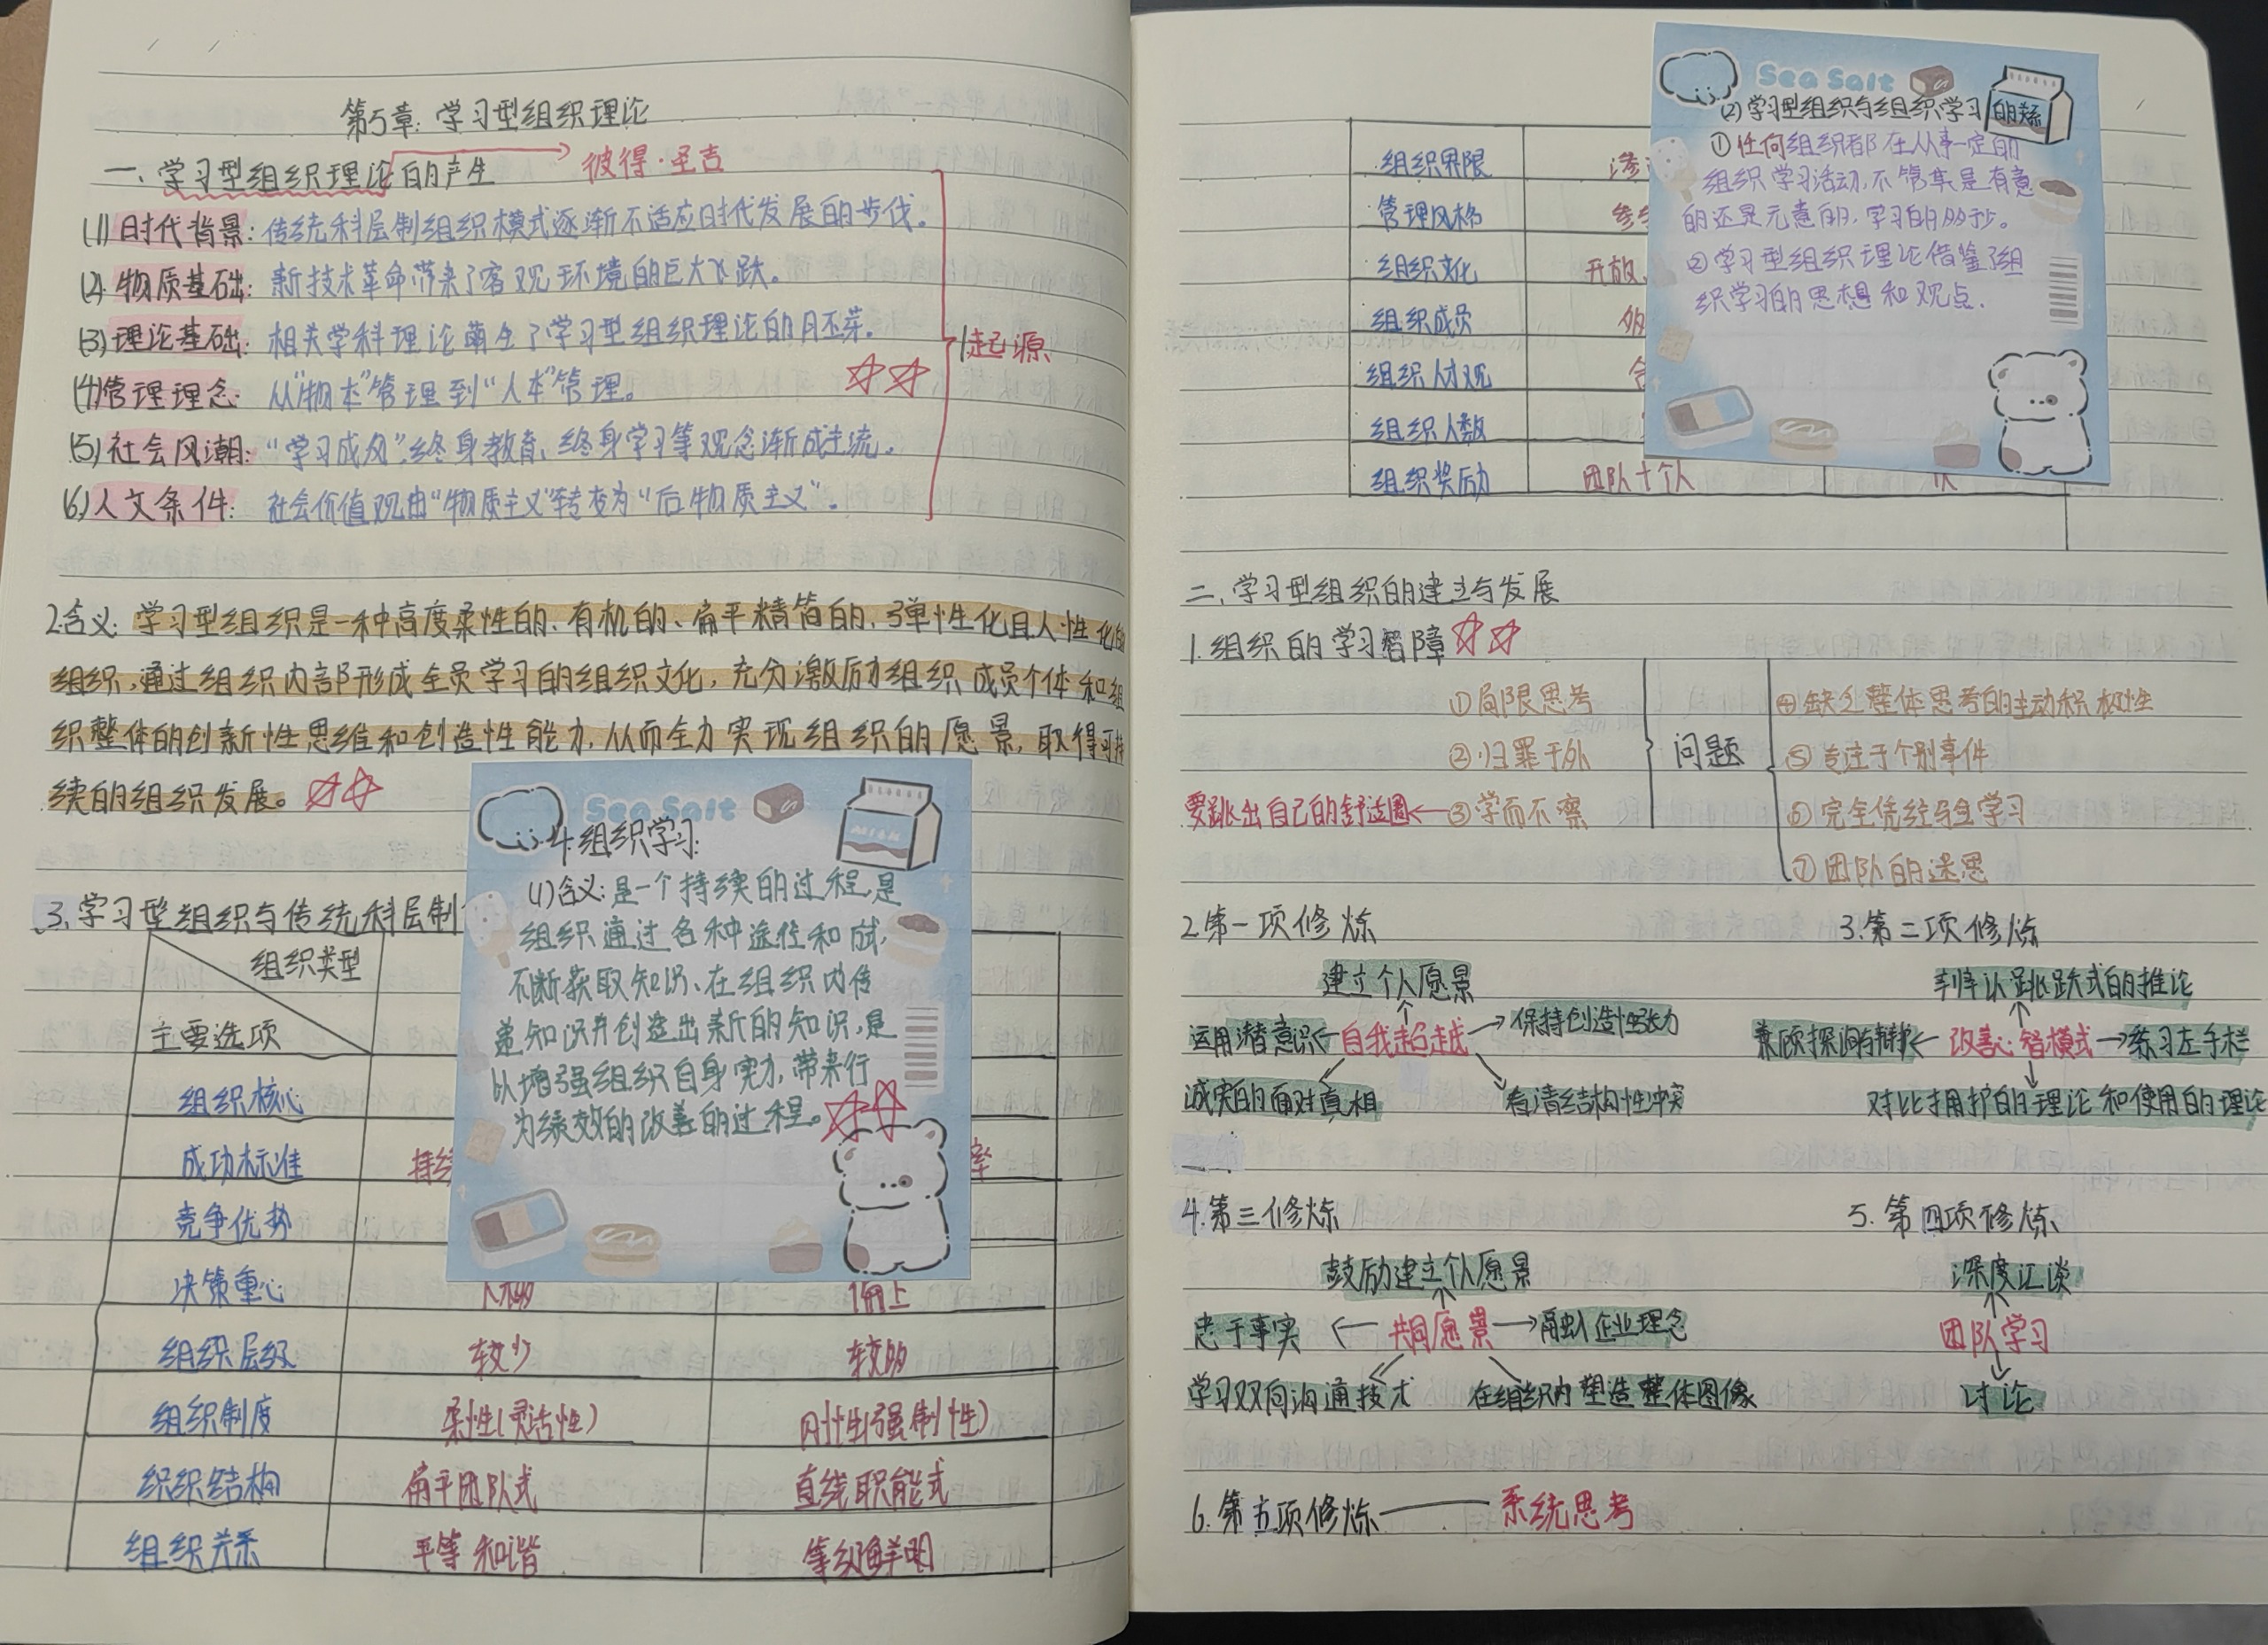 第5章:学习型组织理论
一、学习型组织理论的产生 彼得·圣吉
(1)时代背景:传统科层制组织模式逐渐不适应时代发展的步伐。
(2)物质基础:新技术革命带来了客观环境的巨大飞跃。
(3)理论基础:相关学科理论萌生了学习型组织理论的胚芽。
1.起源
(4)管理理念:从“物本”管理到“人本”管理。
(5)社会风潮:“学习成风”,终身教育、终身学习等观念渐成主流。
(6)人文条件:社会价值观由“物质主义”转变为“后物质主义”。
2.含义:学习型组织是一种高度柔性的、有机的、扁平精简的、弹性化且人性化的
组织,通过组织内部形成全员学习的组织文化,充分激励组织成员个体和组
织整体的创新性思维和创造性能力,从而全力实现组织的愿景,取得可持
续的组织发展。
3.学习型组织与传统科层制
组织类型
主要选项
组织核心
成功标准 持续 率
竞争优势
决策重心
组织层级 较少 较多
组织制度 柔性(灵活性) 刚性(强制性)
织织结构 扁平团队式 直线职能式
组织关系 平等和谐 等级鲜明
Sea Salt
MILK
4.组织学习:
(1)含义:是一个持续的过程,是
组织通过各种途径和
不断获取知识、在组织内传
递知识并创造出新的知识,是
以增强组织自身实力,带来行
为绩效的改善的过程。
组织界限
管理风格 参
组织文化 开放、
组织成员
组织人才观
组织人数
组织奖励 团队+个人 人
Sea Salt
(2)学习型组织与组织学习的关系
①任何组织都在从事一定的
组织学习活动,不管其是有意
的还是无意的,学习的多少。
②学习型组织理论借鉴了组
织学习的思想和观点.
二、学习型组织的建立与发展
1.组织的学习智障
①局限思考
②归罪于外
要跳出自己的舒适圈←③学而不察
问题
④缺乏整体思考的主动积极性
⑤专注于个别事件
⑥完全凭经验学习
⑦团队的迷思
2.第一项修炼
建立个人愿景
运用潜意识←自我超越→保持创造性张力
诚实的面对真相 看清结构性冲突
3.第二项修炼
辨认跳跃式的推论
兼顾探询与辩护←改善心智模式→练习左手栏
对比拥护的理论和使用的理论
4.第三修炼
鼓励建立个人愿景
忠于事实←共同愿景→融入企业理念
学习双向沟通技术 在组织内塑造整体图像
5.第四项修炼
深度汇谈
团队学习
讨论
6.第五项修炼——系统思考